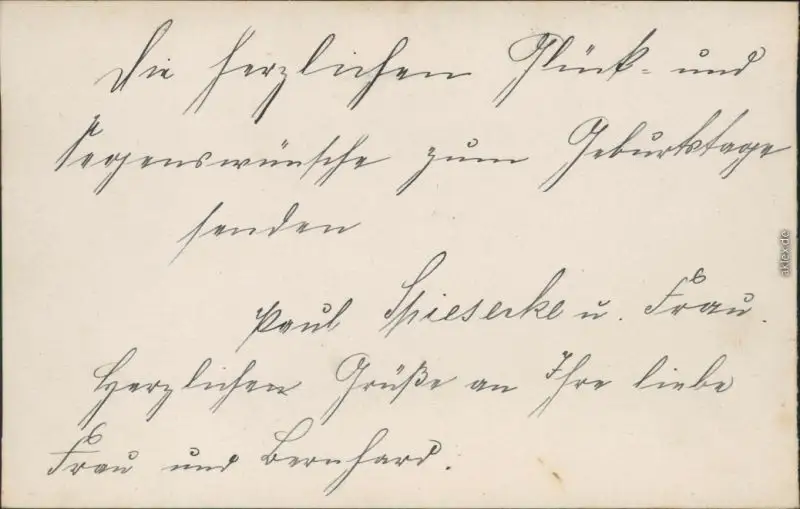 Die herzlichen Glück- und
Segenswünsche zum Geburtstage
senden
Paul Spiesecke u. Frau.
Herzlichen Grüße an Ihre liebe
Frau und Bernhard.
akpool.de